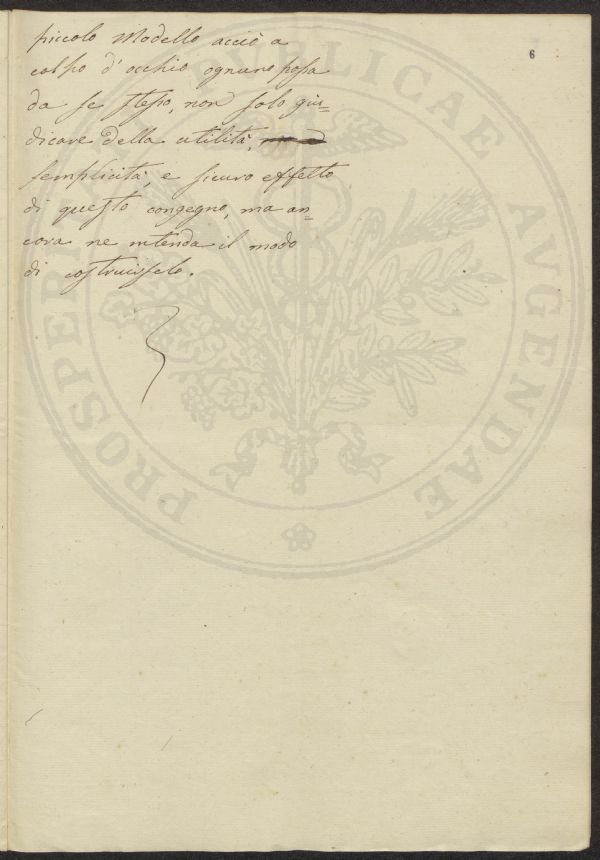 6
piccolo Modello acciò a
colpo d'occhio ognuno possa
da se stesso, non solo giu=
dicare della utilità,
semplicità, e sicuro effetto
di questo congegno, ma an=
cora ne intenda il modo
di costruirselo.
PROSPERITATI PUBLICAE AVGENDAE